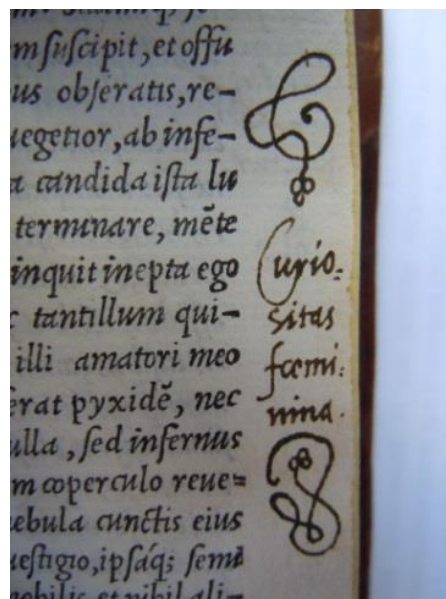 m suscipit, et offu
us obseratis, re-
uegetior, ab infe-
a candida ista lu
terminare, mẽte
inquit inepta ego
tantillum qui-
illi amatori meo
erat pyxidẽ, nec
ulla, sed infernus
m coperculo reue=
ebula cunctis eius
uestigio, ipsáq; semi
nobilis et nihil ali-
Curio:
sitas
fœmi:
nina.